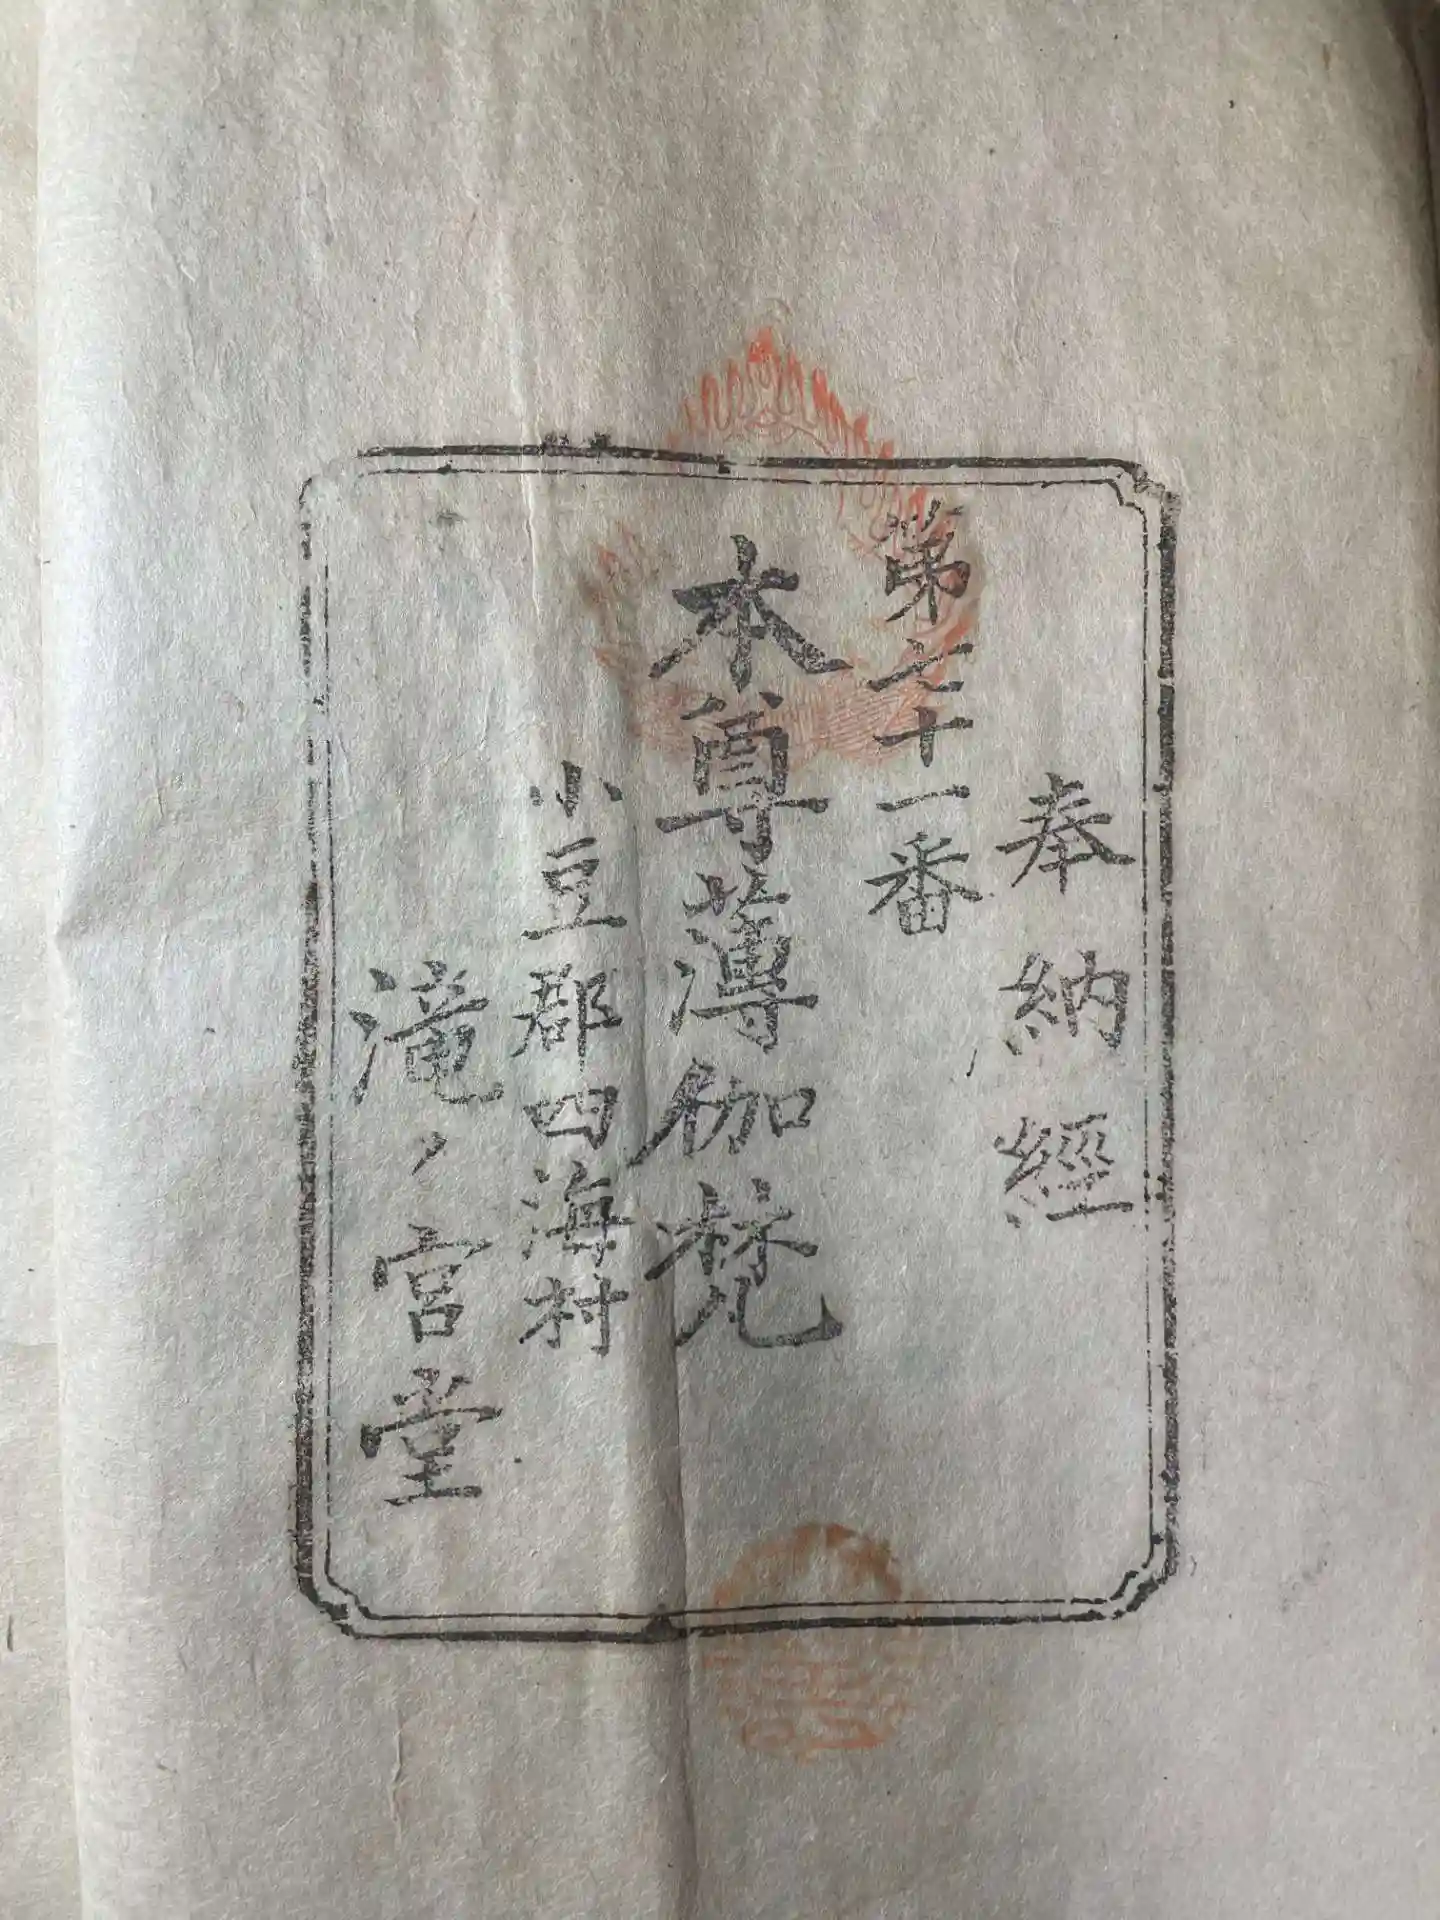 奉納經
第七十一番
本尊薄伽梵
小豆郡四海村
滝ノ宮堂